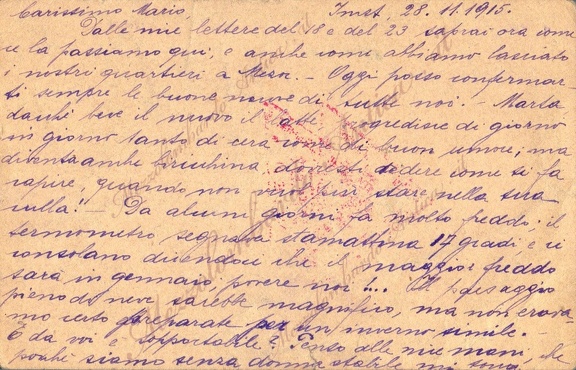 Carissimo Mario, Imst, 28.11.1915.
Dalle mie lettere del 18 e del 23 saprai ora come
ce la passiamo qui, e anche come abbiamo lasciato
i nostri quartieri a - Oggi posso confermar-
ti sempre le buone nuove di tutte noi. - Marta
da che beve il nuovo latte progredisce di giorno
in giorno tanto di cera come di buon umore; ma
diventa anche birichina, dovresti vedere come si fa
capire, quando non vuol più stare nella sua
culla! - Da alcuni giorni fa molto freddo: il
termometro segnava stamattina 17 gradi, e ci
consolano dicendoci che il maggior freddo
sarà in gennaio, povere noi .... Il paesaggio
pieno di neve sarebbe magnifico, ma non erava-
mo certo preparate per un inverno simile. -
E da voi è sopportabile? Penso alle mie mani, che
poiché siamo senza donna stabile mi